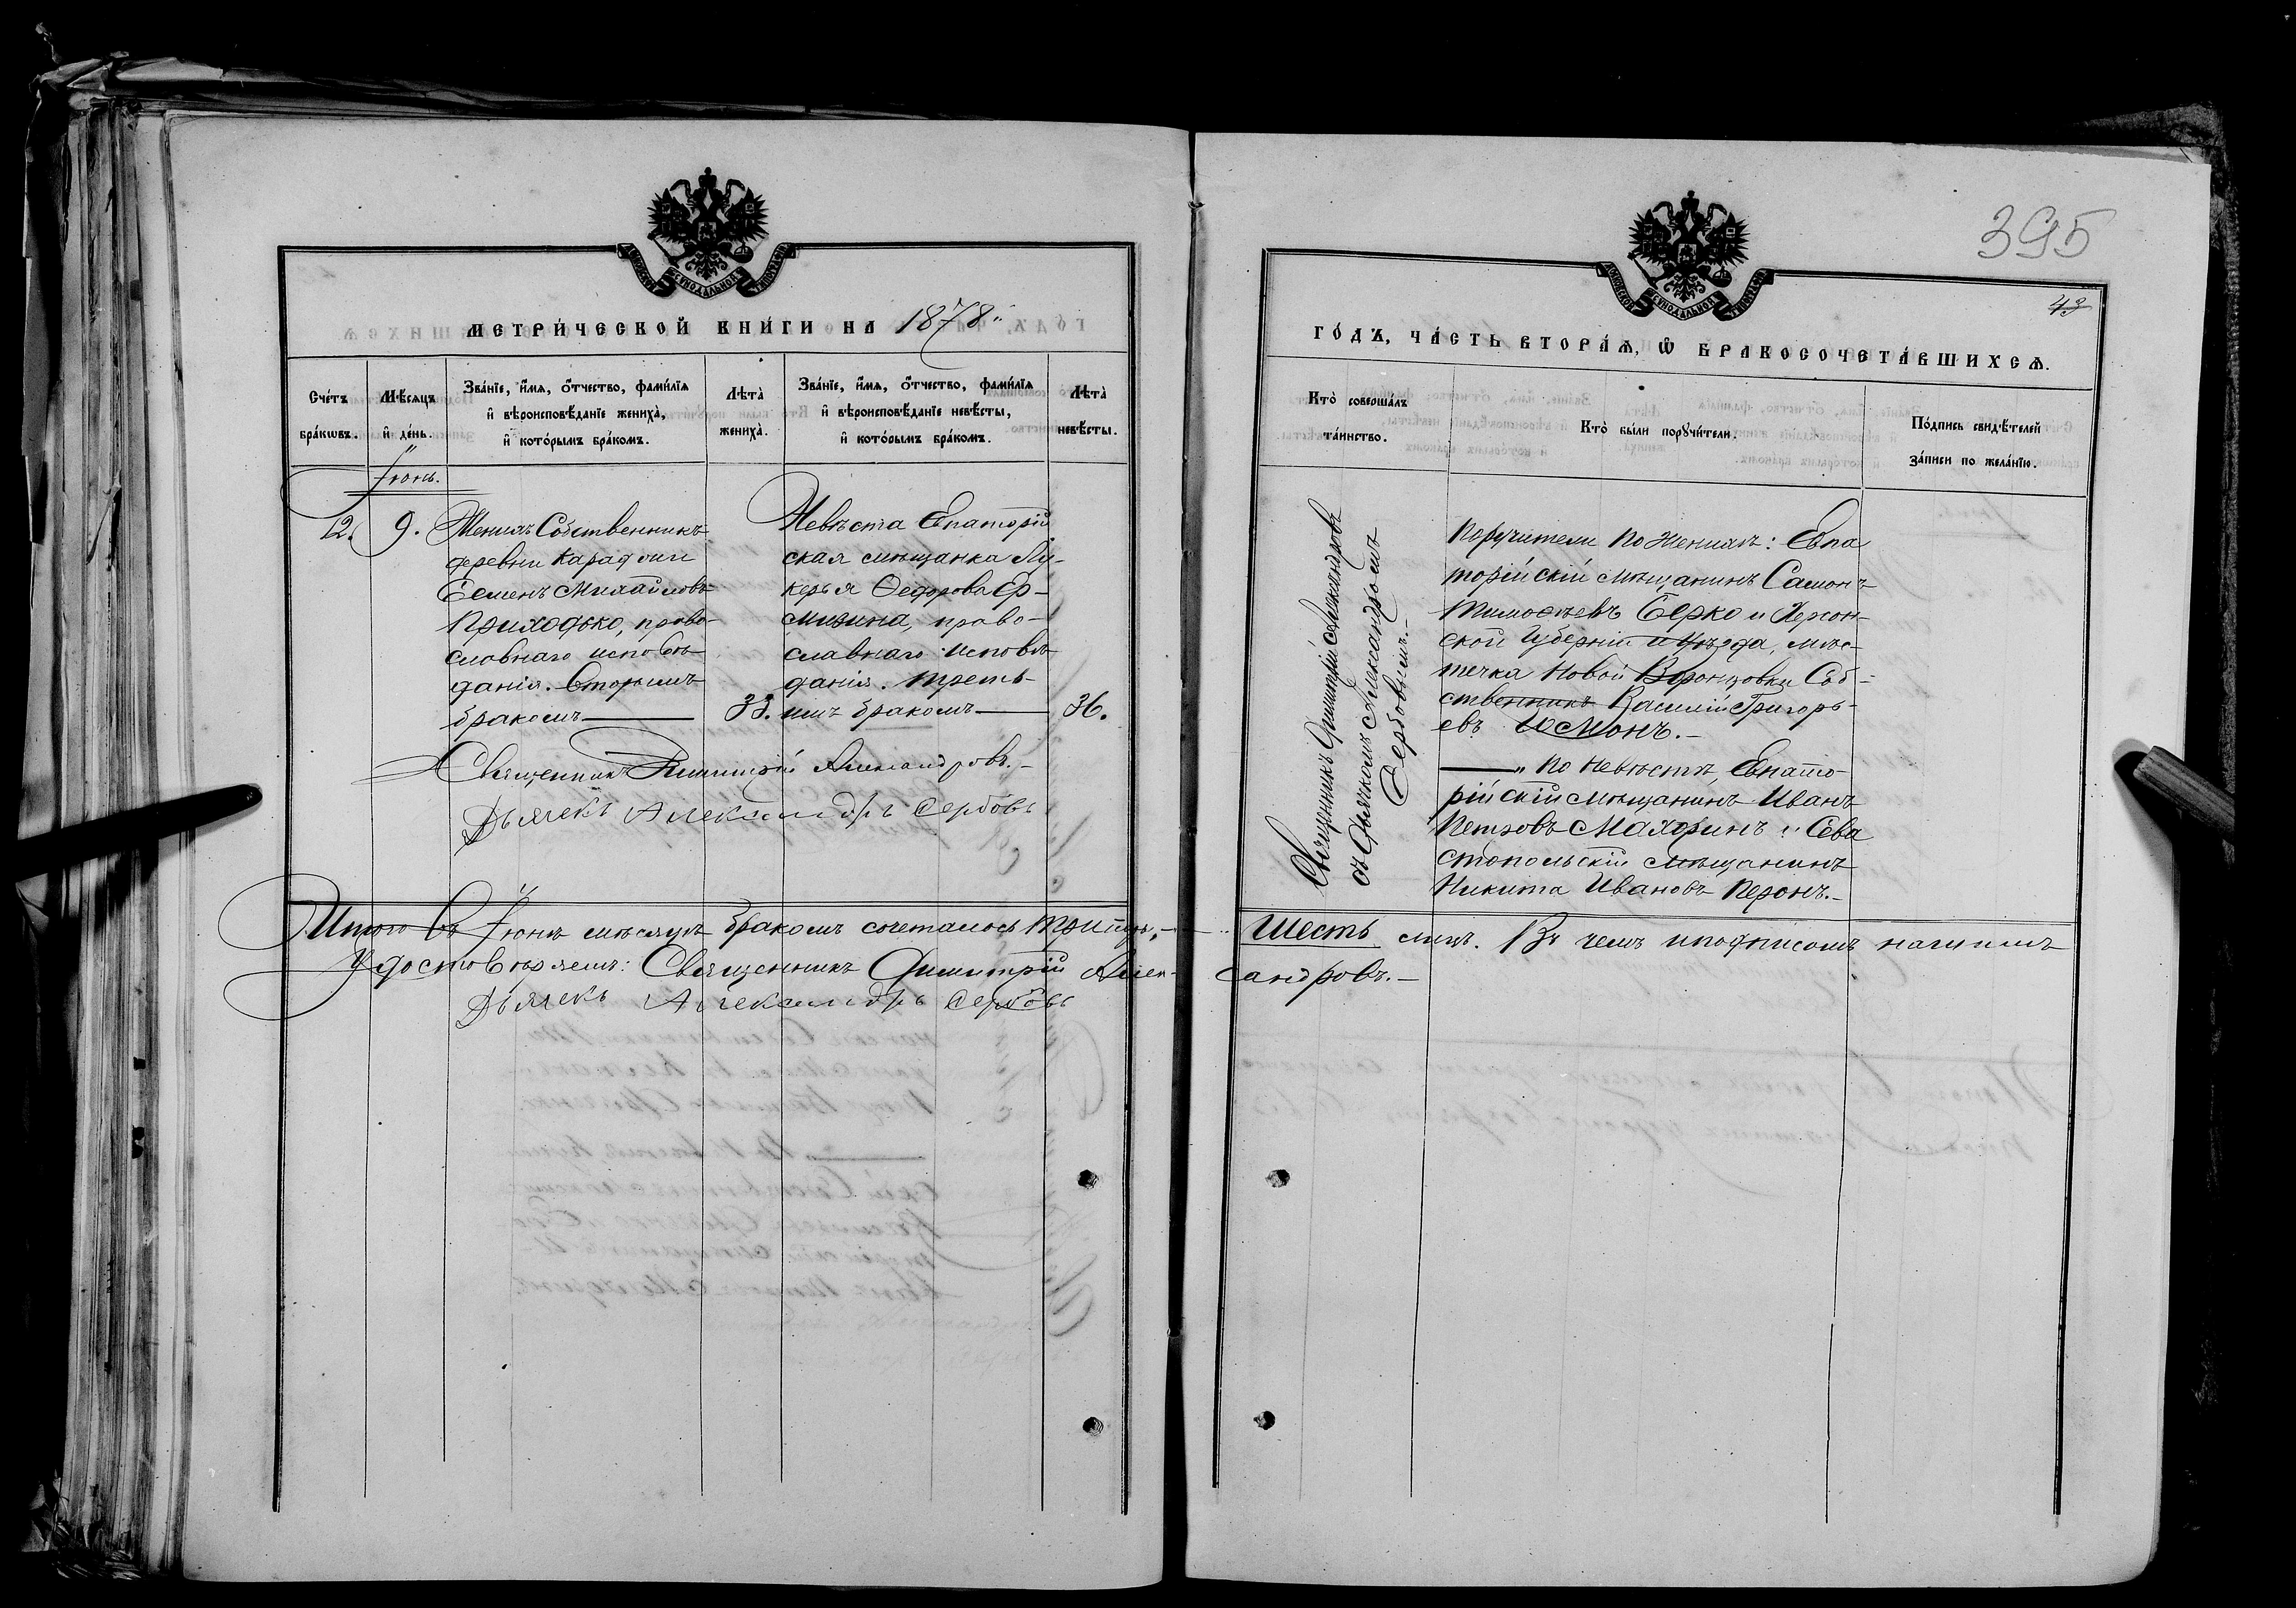 395
43
МЕТРИ́ЧЕСКОЙ КНИ́ГИ НА 1878
ГО́ДЪ, ЧА́СТЬ ВТОРА́Ѧ, Ѽ БРАКОСОЧЕТА́ВШИХСѦ.
Сче́тъ бра́кѡвъ.
Мѣ́сѧцъ и҆ де́нь.
Зва́нїе, и҆́мѧ, ѻ҆́тчество, фами́лїѧ
и҆ вѣроисповѣ́данїе жениха̀,
и҆ кото́рымъ бра́комъ.
Лѣта̀ жениха̀.
Зва́нїе, и҆́мѧ, ѻ҆́тчество, фами́лїѧ
и҆ вѣроисповѣ́данїе невѣ́сты,
и҆ кото́рымъ бра́комъ.
Лѣта̀ невѣ́сты.
Кто̀ соверша́лъ та́инство.
Кто̀ бы́ли порꙋчи́тели.
По́дпись свидѣ́телей за́писи по жела́нїю.
Іюнь.
12. 9.
Женихъ Собственникъ
деревни Караджи
Семенъ Михайловъ
Приходько, право-
славнаго исповѣ-
данія. Вторымъ
бракомъ 33.
Невѣста Евпаторій
ская мѣщанка Лу-
керья Ѳедорова Ер-
мизина, право-
славнаго исповѣ-
данія. треть-
имъ бракомъ 36.
Священникъ Димитрій Александровъ.
Дьячекъ Александръ Сербовъ
Священникъ Димитрій Александровъ
съ Дьячкомъ Александромъ
Сербовымъ.
Поручители по Женихѣ: Евпа
торійскій мѣщанинъ Самонъ
Тимофѣевъ Серко и Херсон-
ской Губерніи и Уѣзда, мѣс-
течка Новой Воронцовки Соб-
ственникъ Василій Григорь-
евъ
По Невѣстѣ, Евпато-
рійскій мѣщанинъ Иванъ
Петровъ Махоринъ и Сева
стопольскій мѣщанинъ
Никита Ивановъ Перонъ.
Итого въ Іюнѣ мѣсяцѣ бракомъ сочеталось три пары, шесть лицъ. Въ чемъ и подписомъ нашимъ
Удостовѣряемъ: Священникъ Димитрій Алек-сандровъ.
Дьячекъ Александръ Сербовъ